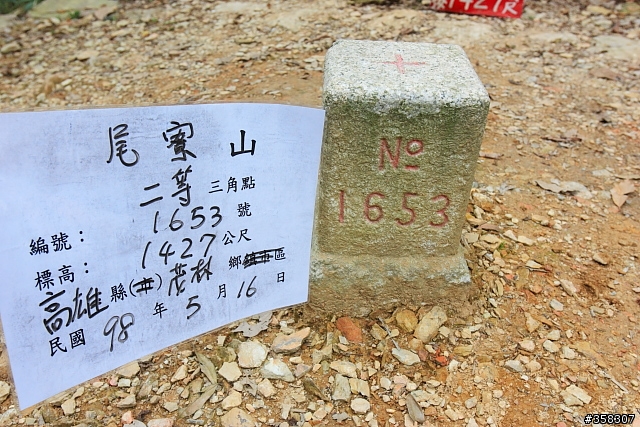 尾寮山
二等 三角點
編號： 1653 號
標高： 1427 公尺
高雄 縣(市) 茂林 鄉鎮市區
民國 98 年 5 月 16 日
No
1653
1427尺
#358307